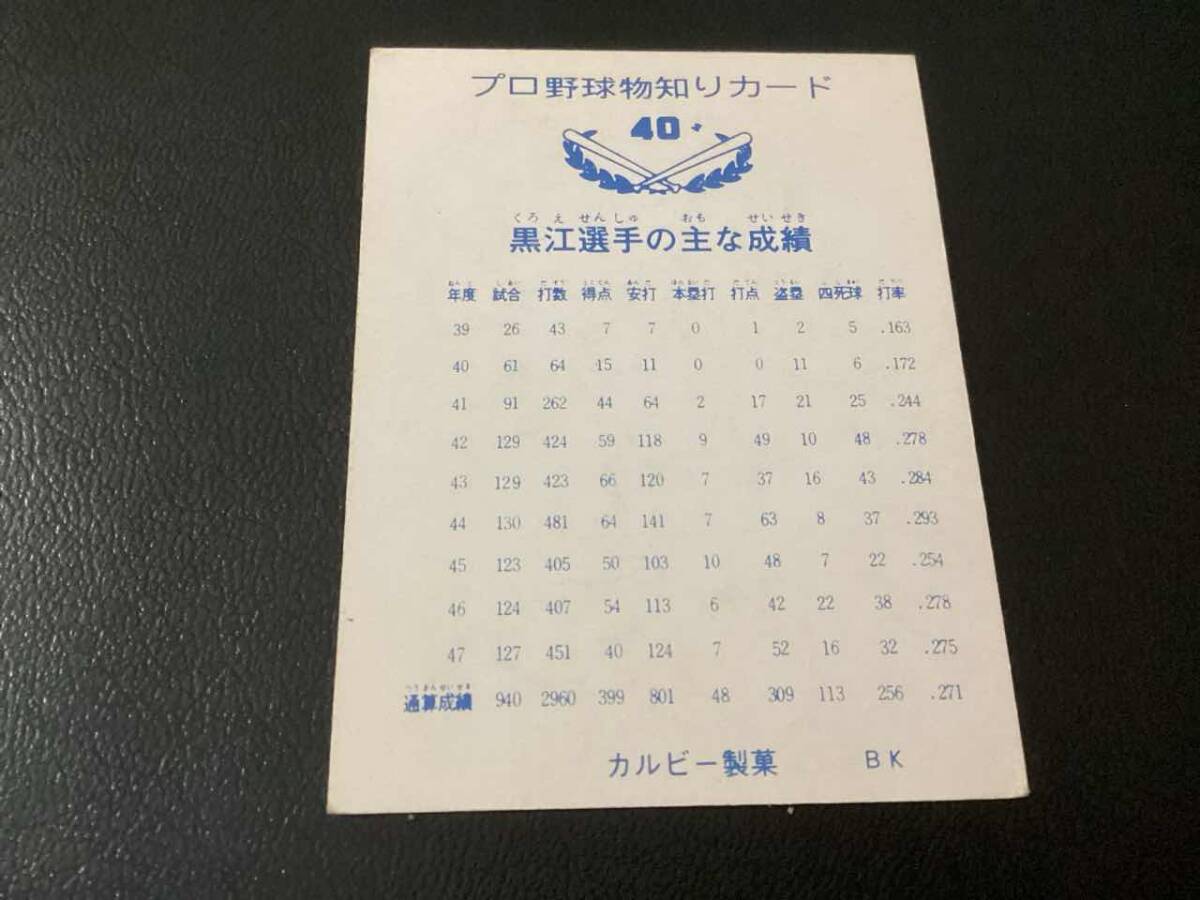 プロ野球物知りカード
40
くろえせんしゅ おも せいせき
黒江選手の主な成績
年度 試合 打数 得点 安打 本塁打 打点 盗塁 四死球 打率
39 26 43 7 7 0 1 2 5 .163
40 61 64 15 11 0 0 11 6 .172
41 91 262 44 64 2 17 21 25 .244
42 129 424 59 118 9 49 10 48 .278
43 129 423 66 120 7 37 16 43 .284
44 130 481 64 141 7 63 8 37 .293
45 123 405 50 103 10 48 7 22 .254
46 124 407 54 113 6 42 22 38 .278
47 127 451 40 124 7 52 16 32 .275
つうさんせいせき
通算成績 940 2960 399 801 48 309 113 256 .271
カルビー製菓 BK